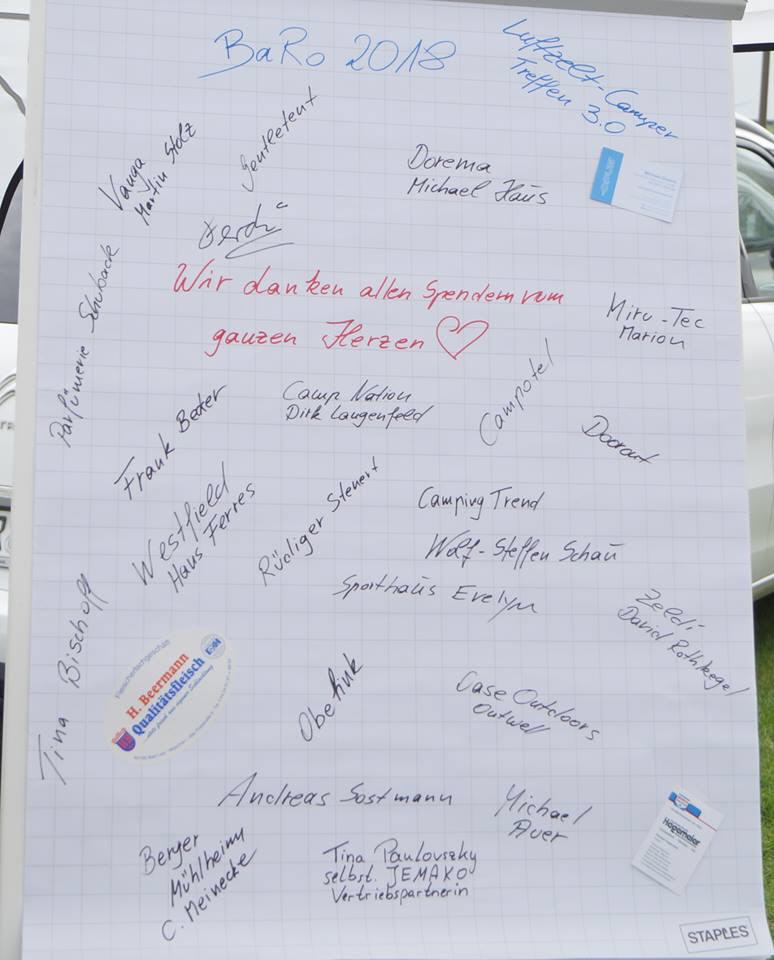 BaRo 2018
Luftzelt-Camper
Treffen 3.0
Vango
Martin Stolz
Gentletent
Dorema
Michael Haus
Wir danken allen Spendern vom
ganzen Herzen
Miru-Tec
Marion
Parfümerie Schuback
Frank Becker
Camp Nation
Dirk Langenfeld
Campotel
Westfield
Hans Ferres
Rüdiger Stenert
Camping Trend
Wolf-Steffen Schau
Sporthaus Evelyn
Zeldi
David Rothkegel
Tina Bischoff
H. Beermann
Qualitätsfleisch
Obelink
Case Outdoors
Outwell
Andreas Sostmann
Michael
Auer
Hagemeier
Berger
Mühlheim
C. Meinecke
Tina Paulovszky
selbst. JEMAKO
Vertriebspartnerin
STAPLES